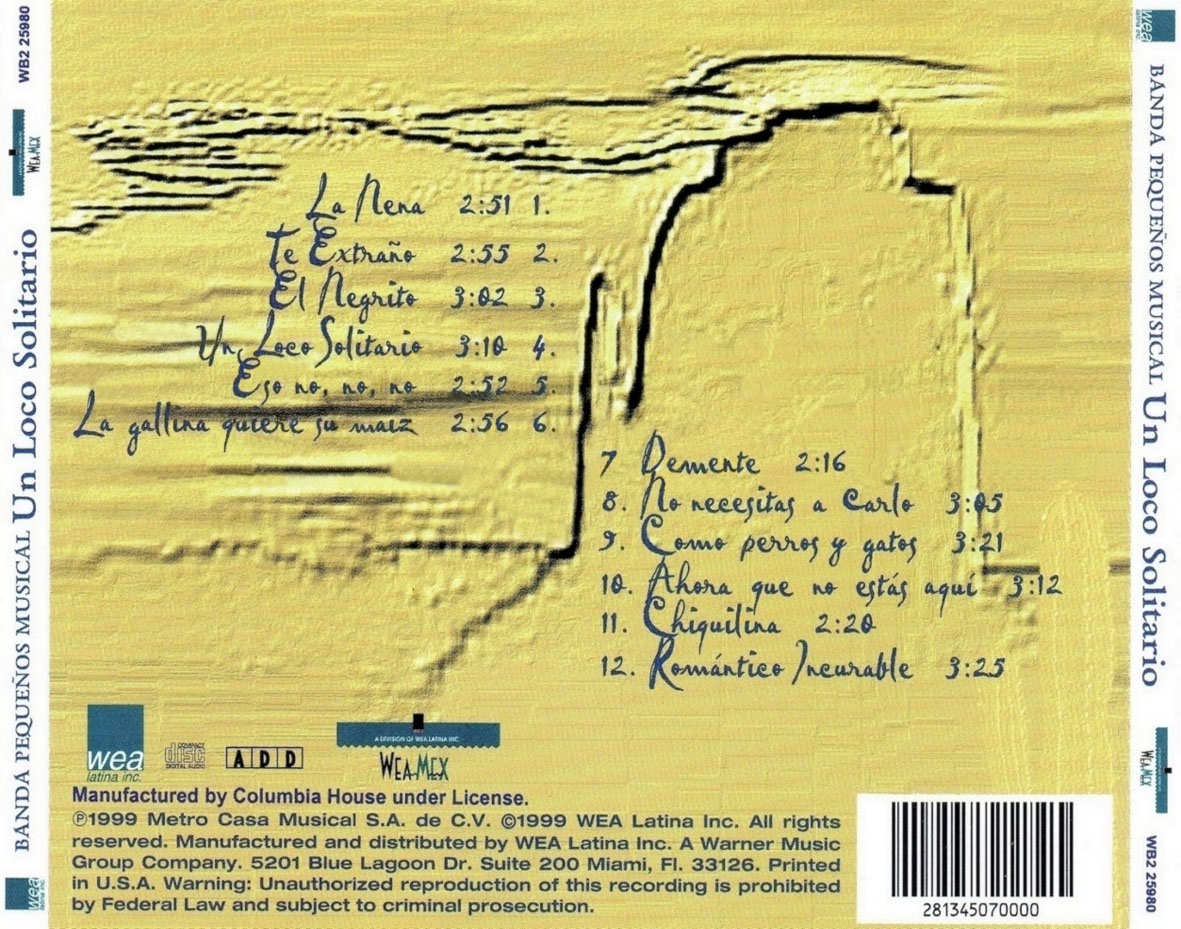 WB2 25980
WEA-MEX
BANDA PEQUEÑOS MUSICAL Un Loco Solitario
La Nena 2:51 1.
Te Extraño 2:55 2.
El Negrito 3:02 3.
Un Loco Solitario 3:10 4.
Eso no, no, no 2:52 5.
La gallina quiere su maiz 2:56 6.
7 Demente 2:16
8. No necesitas a Carlo 3:05
9. Como perros y gatos 3:21
10. Ahora que no estás aquí 3:12
11. Chiquilina 2:20
12. Romántico Incurable 3:25
wea
latina inc.
COMPACT
disc
DIGITAL AUDIO
A D D
A DIVISION OF WEA LATINA INC.
WEA-MEX
Manufactured by Columbia House under License.
℗1999 Metro Casa Musical S.A. de C.V. ©1999 WEA Latina Inc. All rights
reserved. Manufactured and distributed by WEA Latina Inc. A Warner Music
Group Company. 5201 Blue Lagoon Dr. Suite 200 Miami, Fl. 33126. Printed
in U.S.A. Warning: Unauthorized reproduction of this recording is prohibited
by Federal Law and subject to criminal prosecution.
281345070000
wea
latina inc.
BANDA PEQUEÑOS MUSICAL Un Loco Solitario
WEA-MEX
WB2 25980